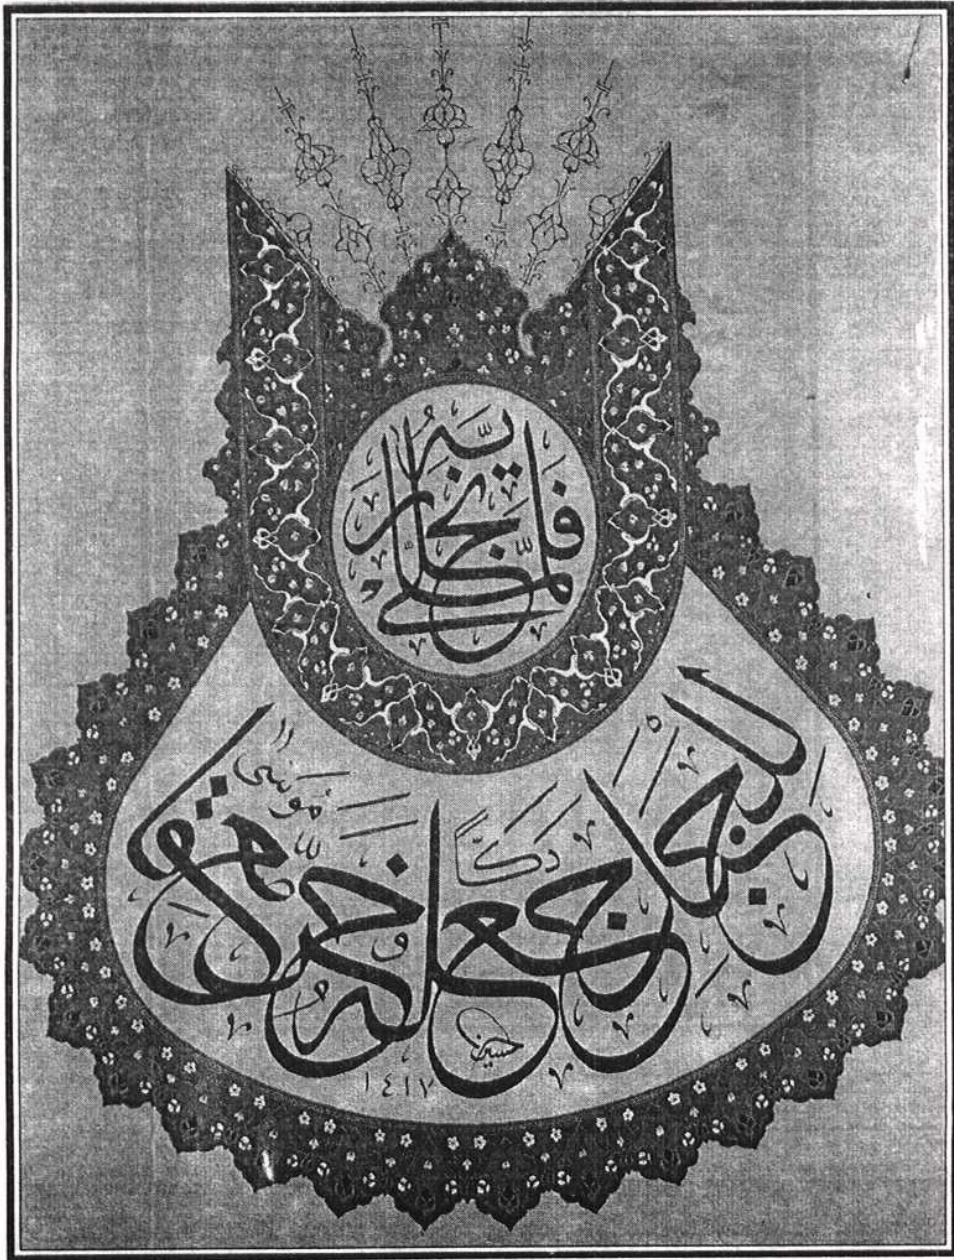 فَلَمَّا تَجَلَّىٰ رَبُّهُ
لِلْجَبَلِ جَعَلَهُ دَكًّا وَخَرَّ مُوسَىٰ صَعِقًا
حسين
١٤١٧